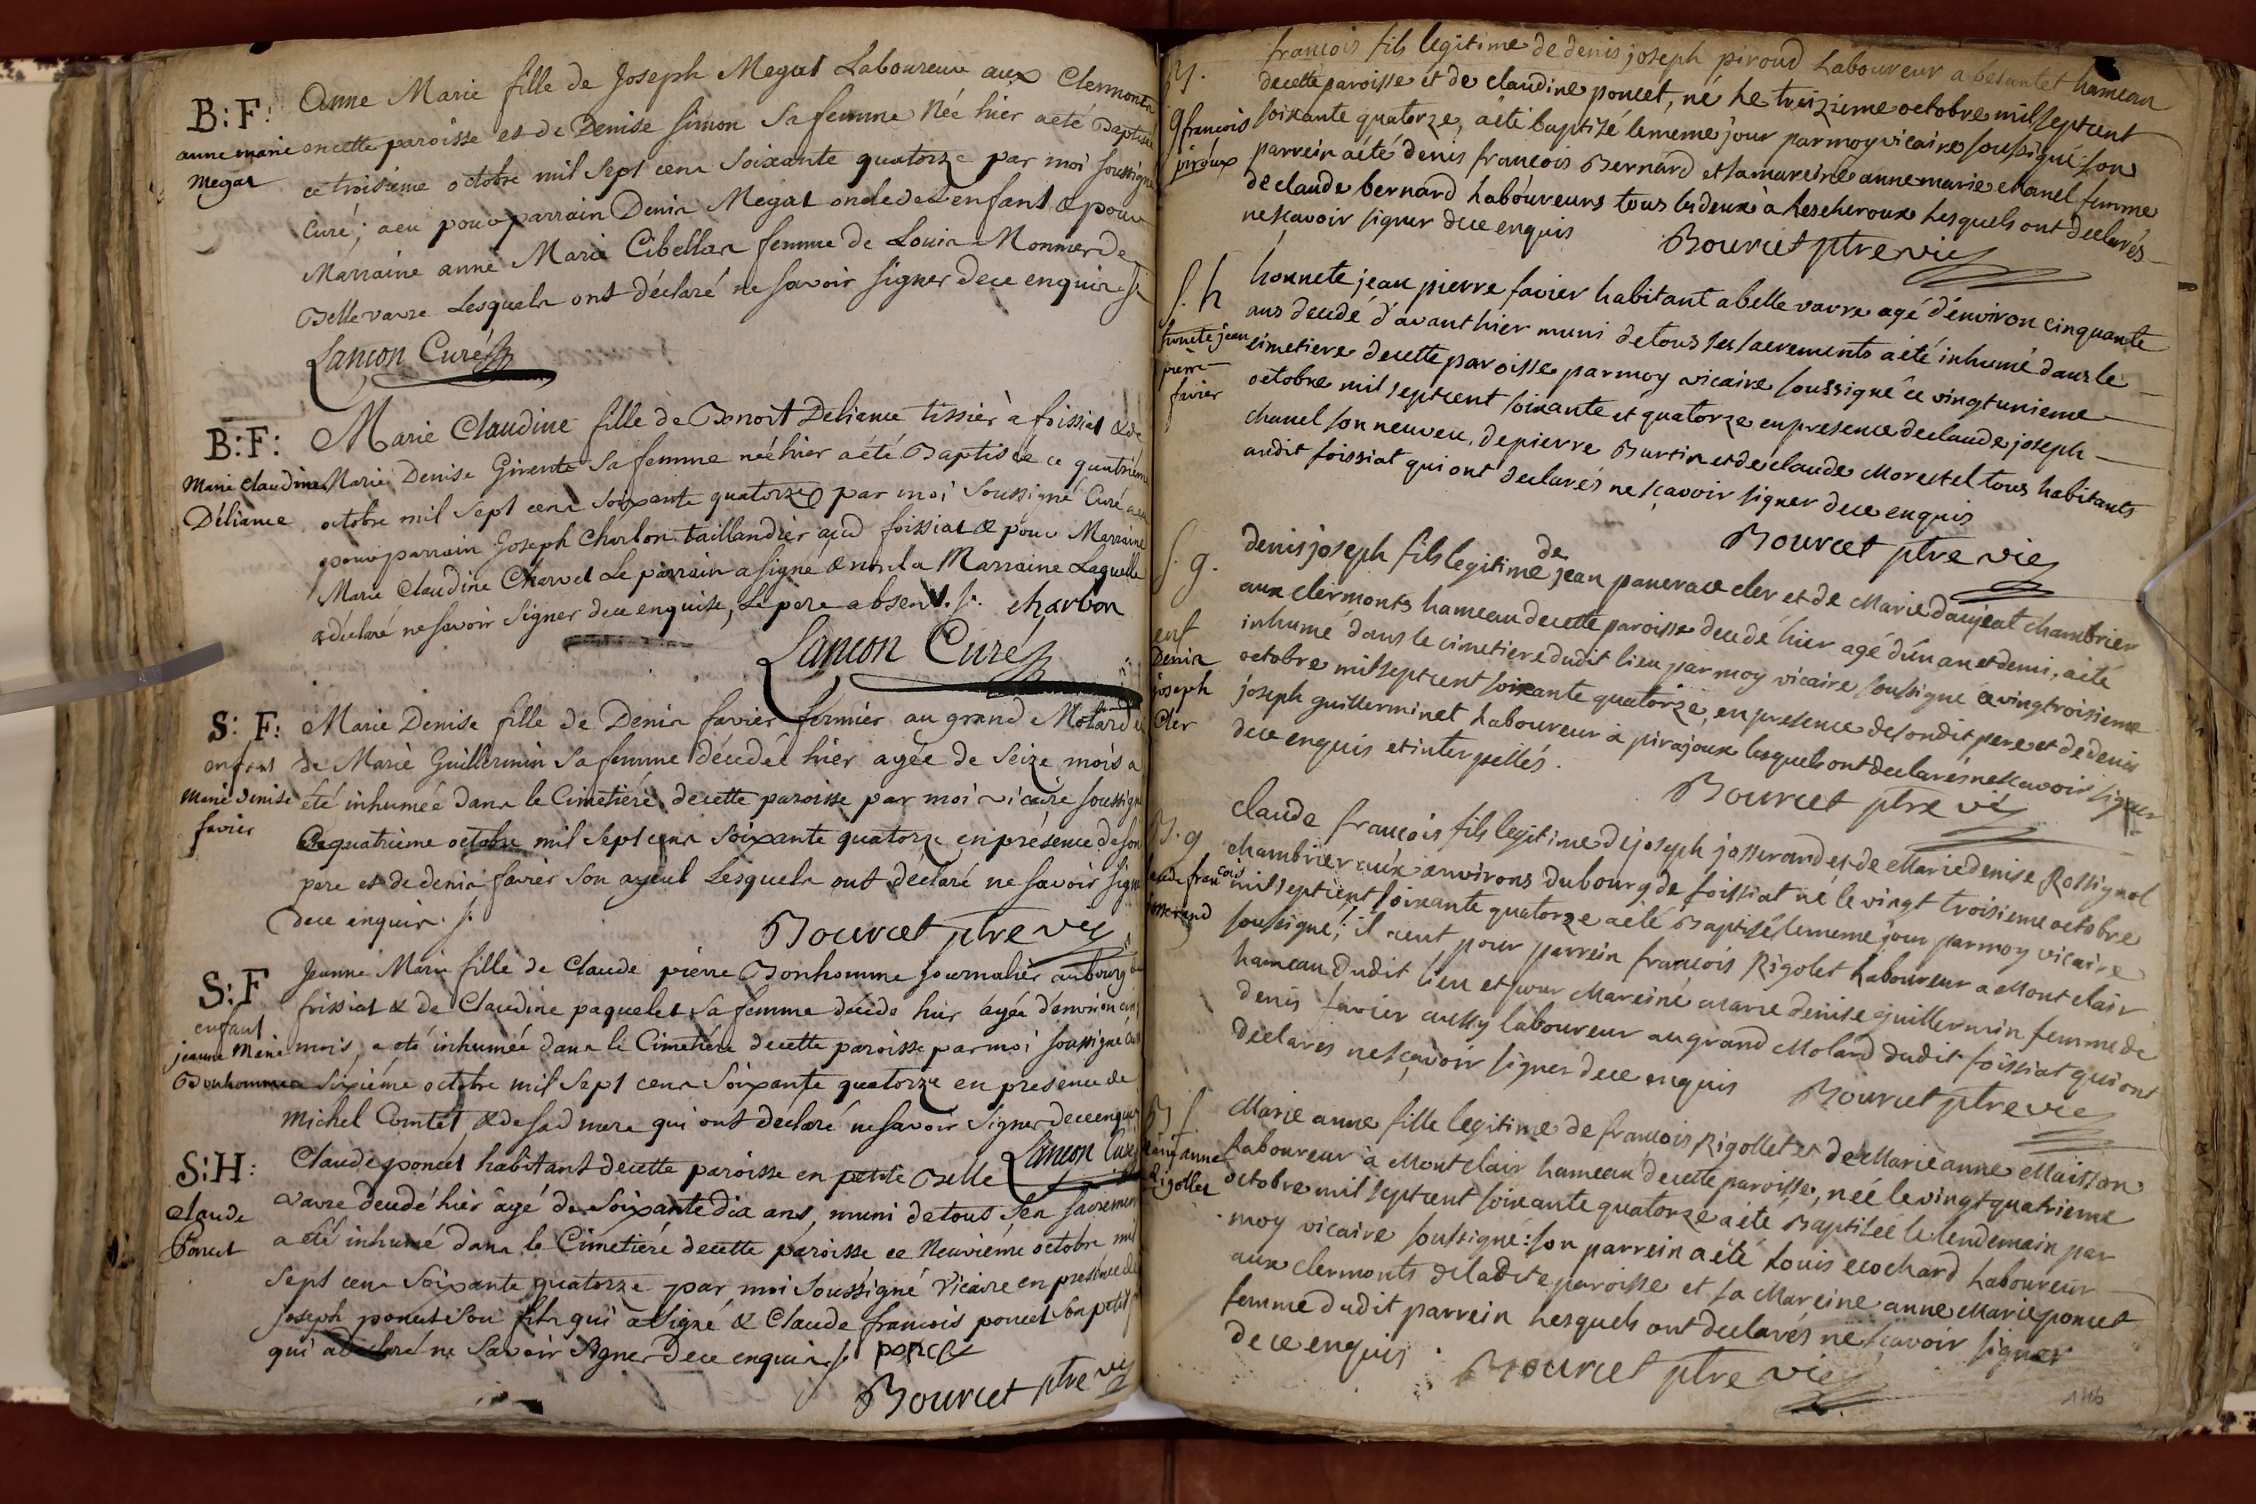 B: F: Anne Marie fille de Joseph Megat Laboureur aux Clermonts
anne marie encette paroisse et de Denise Simon Sa femme Née hier aeté Baptisée
megat ce troisieme octobre mil Sept cens Soixante quatorze par moi Soussigné
Curé; aeu pour parrain Denis Megat oncle de L'enfant & pour
Marraine anne Marie Cibellas femme de Louis Monnier de
Bellevavre Lesquels ont déclaré ne Savoir Signer dece enquis
Lançon Curé
B: F: Marie Claudine fille de Benoit Deliance tissier à foissiat & de
Marie Claudine Marie Denise Girente Sa femme née hier aété Baptisée ce quatrieme
Déliance octobre mil Sept cens Soixante quatorze par moi Soussigné Curé aeu
pour parrain Joseph Charbon taillandier aud foissiat & pour Marraine
Marie Claudine Charvet Le parrain a Signé & non La Marraine Laquelle
a déclaré ne Savoir Signer dece enquise, Le pere absent. charbon
Lançon Curé
S: F: Marie Denise fille de Denis favier fermier au grand Molard &
enfant de Marie Guillermin Sa femme décédée hier agée de Seize mois a
Marie Denise été inhumée dans le Cimetiéré decette paroisse par moi vicaire soussigné
favier Ce quatriéme octobre mil Sept cens Soixante quatorze en présence de son
pere et de denis favier Son ayeul Lesquels ont déclaré ne Savoir Signer
Dece enquis.
Bourcet ptre vic
S: F Jeanne Marie fille de Claude pierre Bonhomme journalier au bourg de
enfant foissiat & de Claudine paquelet Sa femme décédé hier agée d'environ cinq
jeanne Marie mois, a eté inhumée dans le Cimetiére decette paroisse par moi soussigné Curé
Bonhomme Ce Sixiéme octobre mil Sept cens Soixante quatorze en presence de
Michel Comtet, & de Sad mere qui ont déclaré ne Savoir Signer dece enquis
Lançon Curé
S: H: Claude poncet habitant decette paroisse en petite Belle
Claude vavre decedé hier âgé de Soixante dix ans, muni de tous Ses Sacremens
Poncet a été inhumé dans le Cimetiéré decette paroisse ce Neuviéme octobre mil
Sept cens Soixante quatorze par moi Soussigné Vicaire en presence de
Joseph poncet Son fils qui a Signé & Claude francois poncet Son petit f
qui a declaré ne Savoir Signer Dece enquis poncet
Bourcet ptre vic
B. françois fils legitime de denis joseph piroud Laboureur a besantet hameau
decette paroisse et de claudine poncet, né Le treizieme octobre mil sept cent
g françois soixante quatorze, aété baptizé le meme jour par moy vicaire soussigné: son
piroux parrein aété denis françois Bernard et sa mareine anne marie chanel femme
de claude bernard Laboureurs tous les deux à Lescheroux Lesquels ont declarés
ne scavoir signer dece enquis Bourcet ptre vic
S. h honnete jean pierre favier habitant a belle vavre agé d'environ cinquante
ans decedé d'avant hier muni de tous ses sacrements a été inhumé dans le
honete jean cimetiere decette paroisse par moy vicaire soussigné ce vingt unieme
pierre octobre mil sept cent soixante et quatorze en presence de claude joseph
favier chanel son neuveu, de pierre Burtin et de claude Morestel tous habitants
audit foissiat qui ont declarés ne sçavoir signer dece enquis
Bourcet ptre vic
S. g. denis joseph fils legitime de jean pancrace cler et de Marie daujeat chambrier
aux clermonts hameau decette paroisse decedé hier agé d'un an et demi, aété
enf inhumé dans le cimetiere dudit lieu par moy vicaire soussigné ce vingtroisieme
Denis octobre mil sept cent soixante quatorze, en presence de sondit pere et de denis
joseph joseph guillerminet Laboureur à pirajoux lesquels ont declarés ne scavoir signer
Cler dece enquis et interpellés.
Bourcet ptre vic
B. g claude françois fils legitime de joseph josserand et de Marie denise Rossignol
chambrier aux environs du bourg de foissiat né le vingt troisieme octobre
claude françois mil sept cent soixante quatorze a eté Baptisé le meme jour par moy vicaire
josserand soussigné; il a eut pour parrein françois Rigolet Laboureur a Mont clair
hameau dudit lieu et pour Mareine marie denise guillermin femme de
denis favier aussy laboureur au grand Molard dudit foissiat qui ont
declarés ne sçavoir signer dece enquis Bourcet ptre vic
B f Marie anne fille legitime de françois Rigollet et de Marie anne Maisson
marie anne Laboureur à Mont clair hameau decette paroisse, née le vingt quatrieme
Rigollet octobre mil sept cent soixante quatorze a été Baptisée le lendemain par
moy vicaire soussigné: son parrein a été Louis ecochard Laboureur
aux clermonts de ladite paroisse et sa Mareine anne Marie poncet
femme dudit parrein Lesquels ont declarés ne sçavoir signer
de ce enquis. Bourcet ptre vic